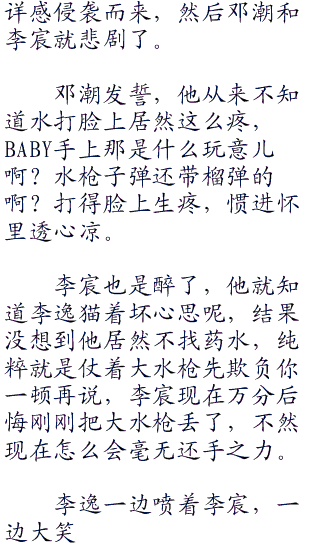 详感侵袭而来，然后邓潮和
李宸就悲剧了。
邓潮发誓，他从来不知
道水打脸上居然这么疼，
BABY手上那是什么玩意儿
啊？水枪子弹还带榴弹的
啊？打得脸上生疼，惯进怀
里透心凉。
李宸也是醉了，他就知
道李逸猫着坏心思呢，结果
没想到他居然不找药水，纯
粹就是仗着大水枪先欺负你
一顿再说，李宸现在万分后
悔刚刚把大水枪丢了，不然
现在怎么会毫无还手之力。
李逸一边喷着李宸，一
边大笑